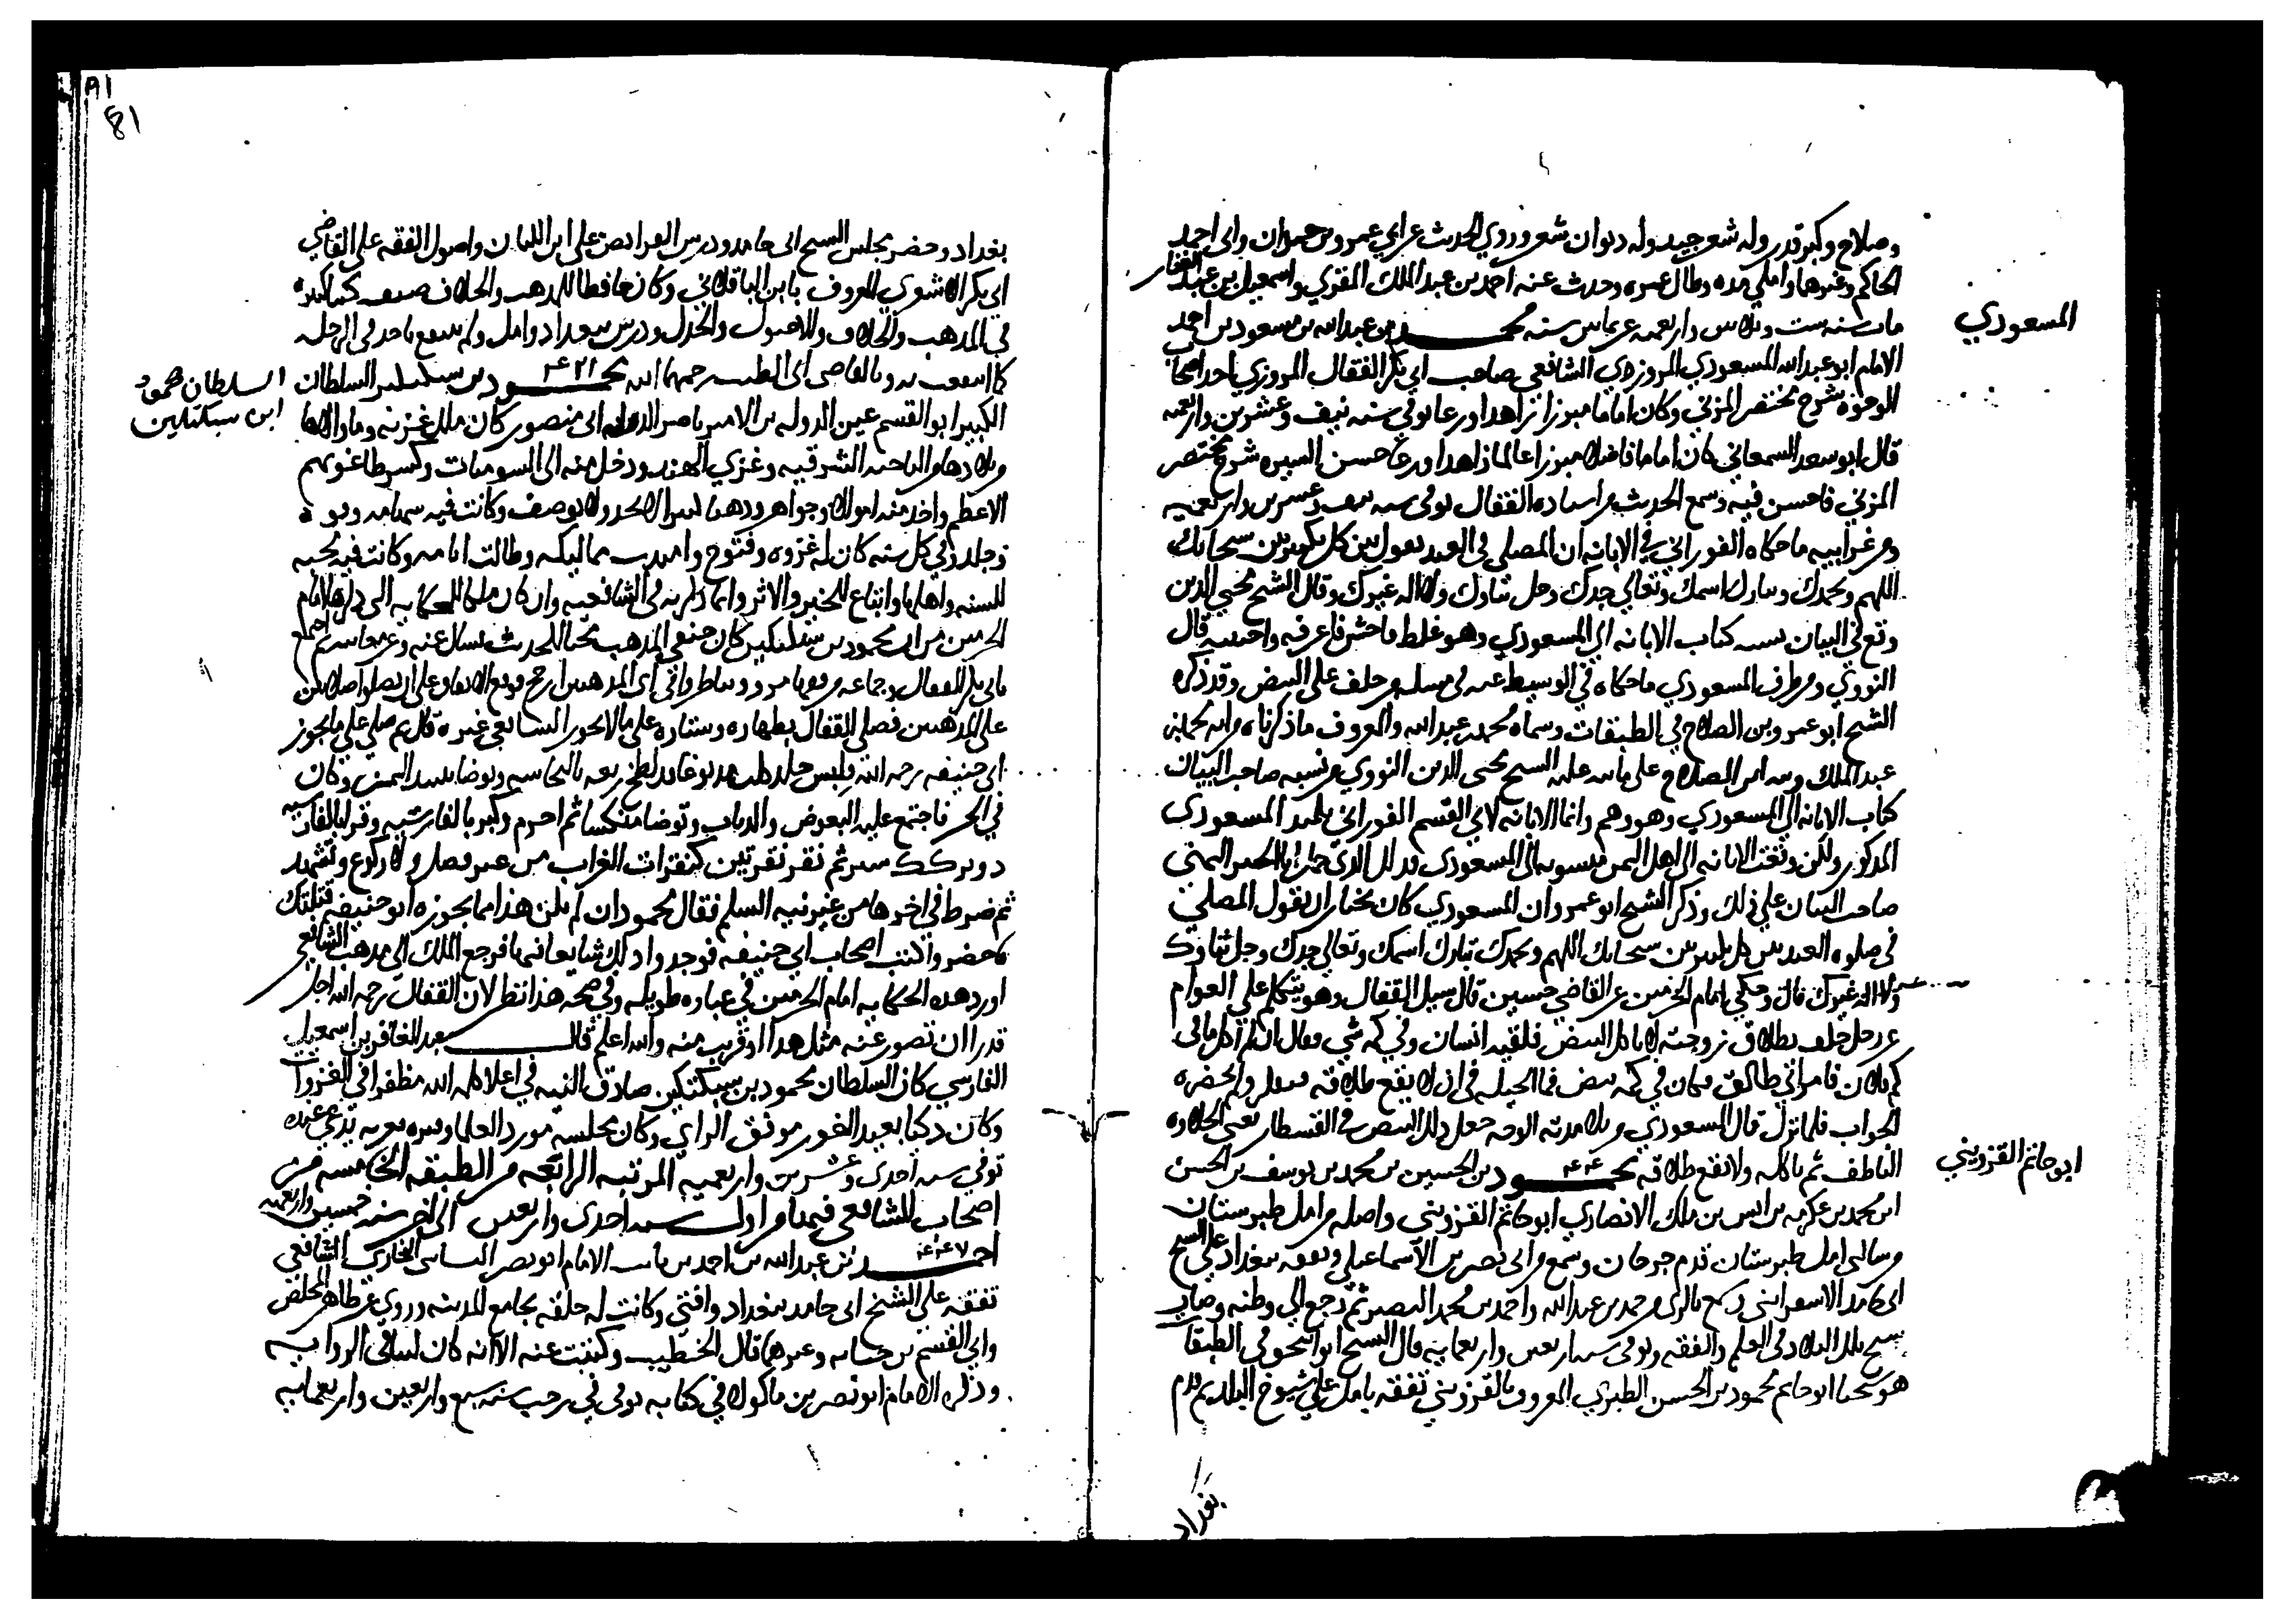 وصلاح وكبر قدر وله شعر جيد وله ديوان شعر وروي الحديث عن ابي عمرو بن حمدان وابي احمد
الحاكم وغيرهما واملي مده وطال عمره وحدث عنه احمد بن عبد الملك المقري واسمعيل بن عبد الغفار
مات سنه ست وثلاثين واربعمه عن ثمانين سنه محمد بن عبد الله بن مسعود بن احمد
المسعودي
الامام ابو عبد الله المسعودي المروزي الشافعي صاحب ابي بكر القفال المروزي احد اصحاب
الوجوه شرح مختصر المزني وكان اماما مبرزا زاهدا ورعا توفي سنه نيف وعشرين واربعمه
قال ابو سعد السمعاني كان اماما فاضلا مبرزا عالما زاهدا ورعا حسن السيره شرح مختصر
المزني فاحسن فيه وسمع الحديث من استاده القفال توفي سنه نيف وعشرين واربعميه
ومن غرايبه ما حكاه الفوراني في الابانه ان المصلي في العيد يقول بين كل تكبيرتين سبحانك
اللهم وبحمدك وتبارك اسمك وتعالي جدك وجل ثناوك ولا اله غيرك وقال الشيخ محيي الدين
وقع في البيان نسبه كتاب الابانه الي المسعودي وهو غلط فاحش فاعرفه واجتنبه قال
النووي ومن طرف المسعودي ما حكاه في الوسيط عنه في مسله من حلف علي البيض وقد ذكره
الشيخ ابو عمرو بن الصلاح في الطبقات وسماه محمد بن عبد الله والمعروف ما ذكرناه وانه محمد بن
عبد الملك ونبه ابن الصلاح علي ما نبه عليه الشيخ محيي الدين النووي من نسبه صاحب البيان
كتاب الابانه الي المسعودي وهو وهم وانما الابانه لابي القسم الفوراني تلميد المسعودي
المذكور ولكن وقعت الابانه الي اهل اليمن منسوبه الي المسعودي فدلك الذي حمل ابا الخير اليمني
صاحب البيان علي ذلك وذكر الشيخ ابو عمرو ان المسعودي كان يختار ان يقول المصلي
في صلوه العيد بين كل تكبيرتين سبحانك اللهم وبحمدك تبارك اسمك وتعالي جدك وجل ثناوك
ولا اله غيرك قال وحكي امام الحرمين عن القاضي حسين قال سيل القفال وهو يتكلم علي العوام
عن رجل حلف بطلاق زوجته لا ياكل البيض فلقيه انسان وفي كمه شي فقال ان لم اكل ما في
كم فلان فامراتي طالق فكان في كمه بيض فما الحيله في ان لا يقع طلاقه فلم يحضره
الجواب فلما نزل قال المسعودي من تلامدته الوجه جعل دلك البيض في القسطار يعني الحلاوه
الناطف ثم ياكله ولا تقع طلاقه محمود بن الحسين بن محمد بن يوسف بن الحسن
ابو حاتم القزويني
ابن محمد بن عكرمه بن انس بن ملك الانصاري ابو حاتم القزويني واصله من امل طبرستان
قدم جرجان وسمع من ابي نصر بن الاسماعيلي وتفقه ببغداد علي الشيخ
ابي حامد الاسفرايني وسمع بالري من حمد بن عبد الله واحمد بن محمد البصير ثم رجع الي وطنه وصار
شيخ تلك البلاد في العلم والفقه وتوفي سنه اربعين واربعمايه قال الشيخ ابو اسحق في الطبقات
هو شيخنا ابو حاتم محمود بن الحسن الطبري المعروف بالقزويني تفقه بامل علي شيوخ البلد ثم قدم
بغداد
٨١
81
بغداد وحضر مجلس الشيخ ابي حامد ودرس الفرايض علي ابن اللبان واصول الفقه علي القاضي
ابي بكر الاشعري المعروف بابن الباقلاني وكان حافظا للمذهب والخلاف صنف كتبا كثيره
في المذهب والخلاف والاصول والجدل ودرس ببغداد وامل ولم انتفع باحد في الرحله
كما انتفعت به وبالقاضي ابي الطيب رحمهما الله ٤٢١ محمود بن سبكتكين السلطان
السلطان محمود
ابن سبكتكين
الكبير ابو القسم يمين الدوله بن الامير ناصر الدوله ابي منصور كان ملك غزنه وما والاها
وبلادها والناحيه الشرقيه وغزي الهند ودخل منه الي السومنات وكسر طاغوتهم
الاعظم واخد منه اموالا وجواهر ودهبا كثيرا لا يحد ولا يوصف
وجلد وفي كل سنه كان له غزوه وفتوح وامتدت مماليكه وطالت ايامه وكانت فيه محبه
للسنه واهلها واتباع للخبر والاثر وانما ذكرته في الشافعيه وان كان ملكا لحكايه ذكرها امام
الحرمين من ان محمود بن سبكتكين كان حنفي المذهب محبا للحديث يسال عنه وعن معانيه ثم اجتمع
بابي بكر القفال وجماعه من فقها مرو وتناظروا في اي المذهبين ارجح فوقع الاتفاق علي ان يصلوا صلاتين
علي المذهبين فصلي القفال بطهاره وستاره علي ما لا يجوز الشافعي غيره قال ثم صلي علي ما يجوز
ابي حنيفه رحمه الله فلبس جلد كلب مدبوغا قد لطخ ربعه بالنجاسه وتوضا بنبيد التمر وكان
في الحر فاجتمع عليه البعوض والذباب وتوضا منكسا ثم احرم وكبر بالفارسيه وقرا بالفارسيه
دو برك سبز ثم نقر نقرتين كنقرات الغراب من غير فصل ولا ركوع وتشهد
ثم ضرط في اخرها من غير نيه السلم فقال محمود ان لم يكن هذا مما يجوزه ابو حنيفه قتلتك
فاحضروا كتب اصحاب ابي حنيفه فوجدوا دلك شايعا فرجع الملك الي مذهب الشافعي
اورد هذه الحكايه امام الحرمين في عباره طويله وفي صحه هذا نظر لان القفال رحمه الله اجل
قدرا ان تصور عنه مثل هذا او قريب منه والله اعلم قال عبد الغافر بن اسمعيل
الفارسي كان السلطان محمود بن سبكتكين صادق النيه في اعلا كلمه الله مظفرا في الغزوات
وكان ذكيا بعيد الغور موفق الراي وكان مجلسه مورد العلما وقبره بغزنه يدعي عنده
توفي سنه احدي وعشرين واربعميه المرتبه الرابعه من الطبقه الخامسه من
اصحاب الشافعي فيمن من اول سنه احدي واربعين الي اخر سنه خمسين واربعميه
٤٤٧ احمد بن عبد الله بن احمد بن ثابت الامام ابو نصر الثابتي البخاري الشافعي
تفقه علي الشيخ ابي حامد ببغداد وافتي وكانت له حلقه بجامع المدينه وروي عن طاهر المخلص
وابي القسم بن حبابه وغيرهما قال الخطيب وكتبت عنه الا انه كان لينا في الروايه
وذكره الامام ابو نصر بن ماكولا في كتابه توفي في رجب سنه سبع واربعين واربعمايه